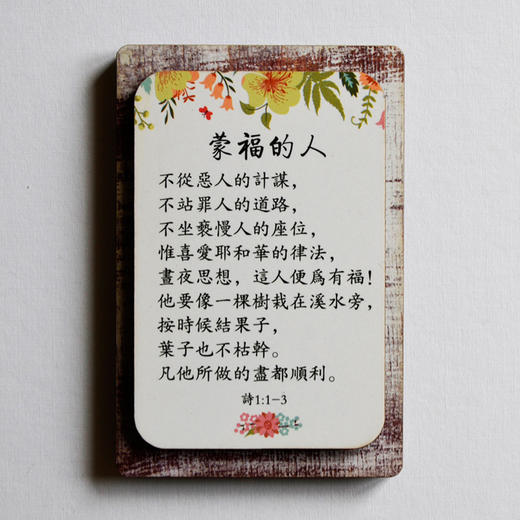 蒙福的人
不從惡人的計謀，
不站罪人的道路，
不坐褻慢人的座位，
惟喜愛耶和華的律法，
晝夜思想，這人便爲有福！
他要像一棵樹栽在溪水旁，
按時候結果子，
葉子也不枯幹。
凡他所做的盡都順利。
詩1:1-3